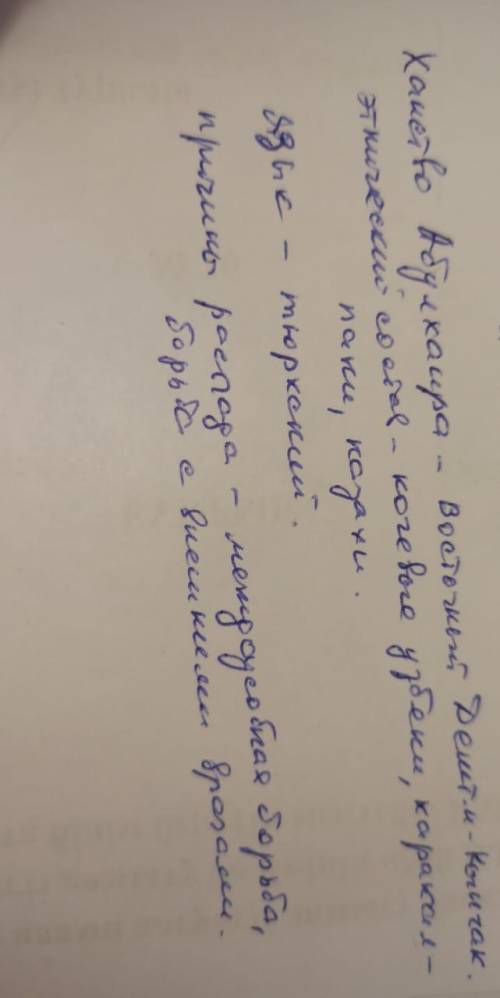 Ханство Абулхаира - Восточный Дешти-Кыпчак.
этнический состав - кочевые узбеки, каракал-
паки, казахи.
Язык - тюркский.
причины распада - междоусобная борьба,
борьба с внешними врагами.